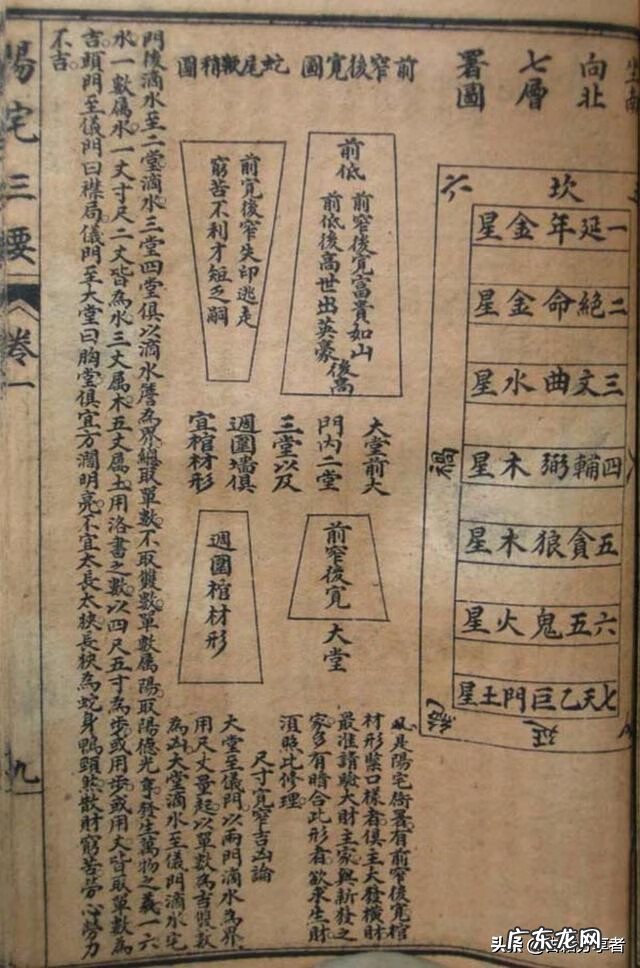 向北
七層
署圖
六
坎
一延年金星
二絶命金星
三文曲水星
四輔弼木星
五貪狼木星
六五鬼火星
七天乙巨門土星
禍
絶
延
前窄後寬圖
蛇尾歉稍圖
前低
前窄後寬富貴如山
前低後高世出英豪
後高
前寬後窄失印逃走
窮苦不利才短乏嗣
大堂前大
門內二堂
三堂以及
週圍墻俱
宜棺材形
前窄後寬
大堂
週圍棺材形
凡是陽宅衙署有前窄後寬棺
材形塋口樣者俱主大發橫財
最准請驗大財主家與新發之
家多有暗合此形者欲求生財
須照此修理
尺寸寬窄吉凶論
大堂至儀門以兩門滴水為界
用尺丈量起以單數為吉雙數
為凶大堂滴水至儀門滴水宅
門後滴水至二堂滴水三堂四堂俱以滴水簷為界總取單數不取雙數單數屬陽取陽德光亨發生萬物之義一六
水一數屬水一丈寸尺二丈皆為水三丈屬木五丈屬土用洛書之數以四尺五寸為步或用步或用丈皆取單數為
吉頭門至儀門曰襟局儀門至大堂曰胸堂俱宜方濶明亮不宜太長太狹長狹為蛇身鴨頸煞散財窮苦勞心勞力
不吉
陽宅三要
卷一
九
广东龙网
头条